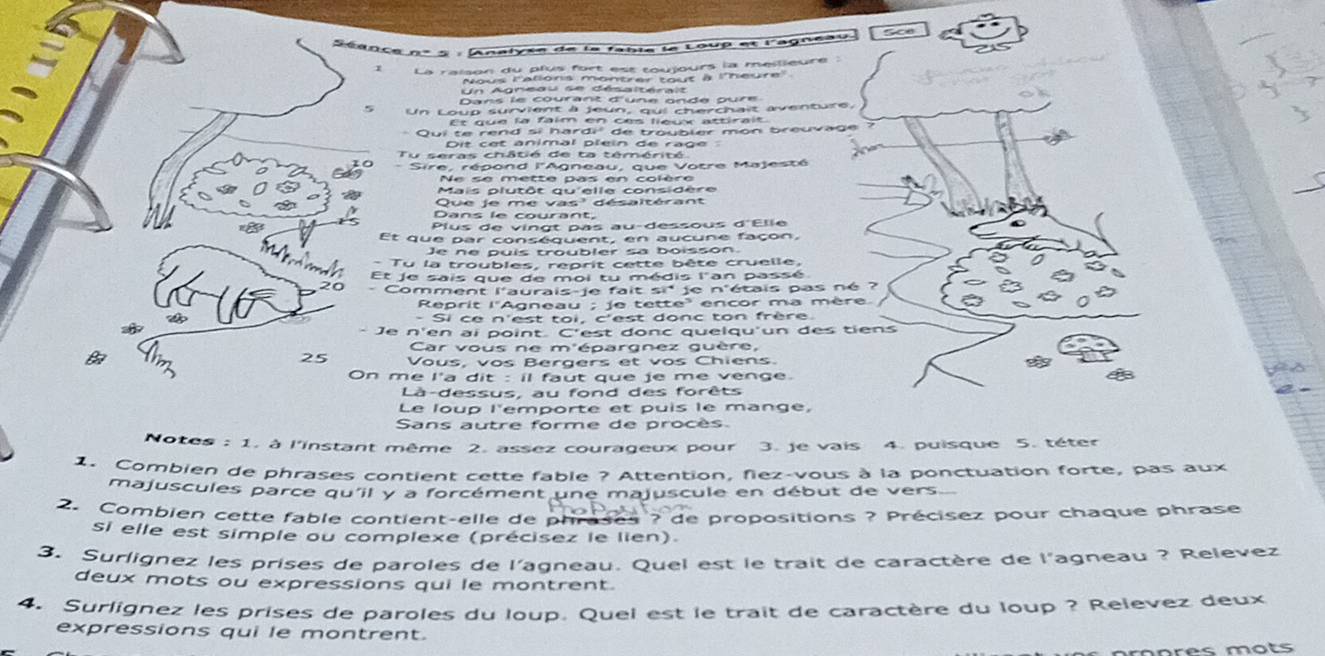 Séance n° 5 : Analyse de la fable le Loup et l'agneau. 5ce
1 La raison du plus fort est toujours la meilleure :
Nous l'allons montrer tout à l'heure¹.
Un Agneau se désaltérait
Dans le courant d'une onde pure.
5 Un Loup survient à jeun, qui cherchait aventure,
Et que la faim en ces lieux attirait.
- Qui te rend si hardi² de troubler mon breuvage ?
Dit cet animal plein de rage :
Tu seras châtié de ta témérité.
10 - Sire, répond l'Agneau, que Votre Majesté
Ne se mette pas en colère
Mais plutôt qu'elle considère
Que je me vas³ désaltérant
Dans le courant,
15 Plus de vingt pas au-dessous d'Elle
Et que par conséquent, en aucune façon,
Je ne puis troubler sa boisson.
- Tu la troubles, reprit cette bête cruelle,
Et je sais que de moi tu médis l'an passé.
20 - Comment l'aurais-je fait si⁴ je n'étais pas né ?
Reprit l'Agneau ; je tette⁵ encor ma mère.
- Si ce n'est toi, c'est donc ton frère.
- Je n'en ai point. C'est donc quelqu'un des tiens
Car vous ne m'épargnez guère,
25 Vous, vos Bergers et vos Chiens.
On me l'a dit : il faut que je me venge.
Là-dessus, au fond des forêts
Le loup l'emporte et puis le mange,
Sans autre forme de procès.
Notes : 1. à l'instant même 2. assez courageux pour 3. je vais 4. puisque 5. téter
1. Combien de phrases contient cette fable ? Attention, fiez-vous à la ponctuation forte, pas aux
majuscules parce qu'il y a forcément une majuscule en début de vers...
Proposition
2. Combien cette fable contient-elle de phrases ? de propositions ? Précisez pour chaque phrase
si elle est simple ou complexe (précisez le lien).
3. Surlignez les prises de paroles de l'agneau. Quel est le trait de caractère de l'agneau ? Relevez
deux mots ou expressions qui le montrent.
4. Surlignez les prises de paroles du loup. Quel est le trait de caractère du loup ? Relevez deux
expressions qui le montrent.
propres mots